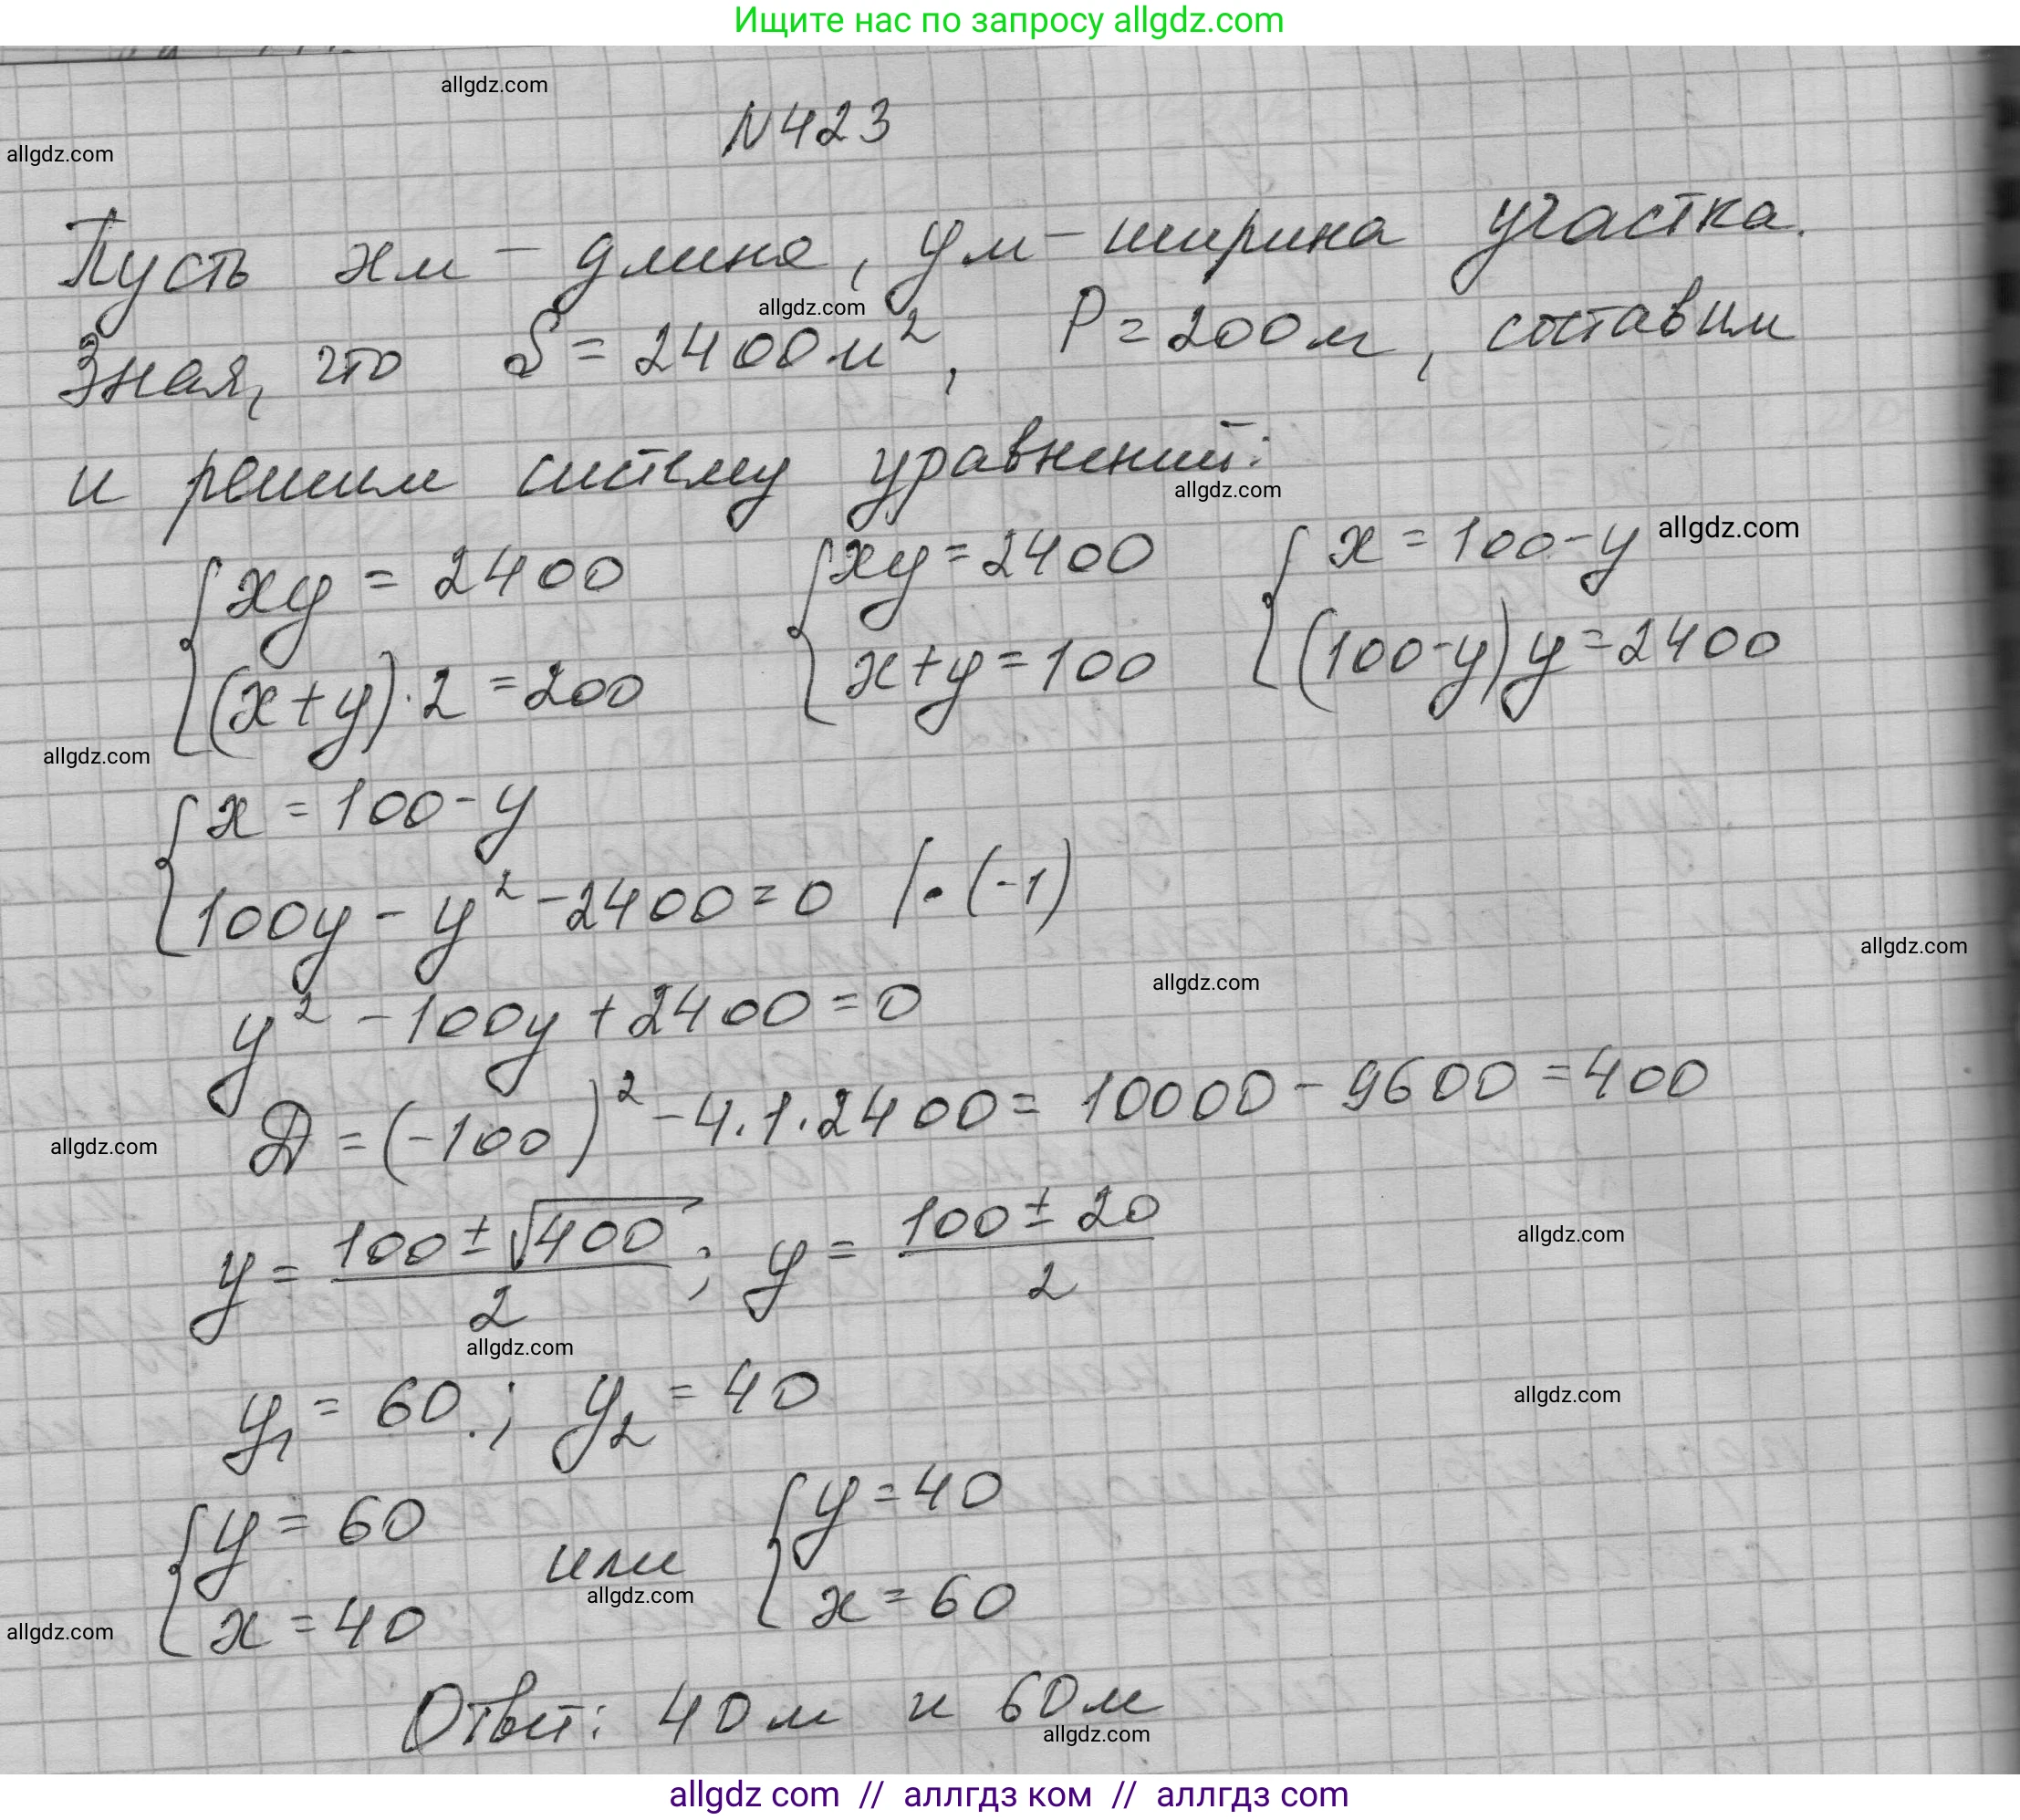 Ищите нас по запросу allgdz.com
allgdz.com
N423
allgdz.com
Пусть xм - длина, yм - ширина участка.
allgdz.com
Зная, что S = 2400м², P = 200м, составим
и решим систему уравнений:
allgdz.com
{xy = 2400 {xy = 2400 {x = 100-y
allgdz.com
(x+y)·2 = 200 x+y = 100 (100-y)y = 2400
allgdz.com
{x = 100-y
100y - y² - 2400 = 0 |·(-1)
allgdz.com
allgdz.com
y² - 100y + 2400 = 0
D = (-100)² - 4·1·2400 = 10000 - 9600 = 400
allgdz.com
y = (100 ± √400)/2; y = (100 ± 20)/2
allgdz.com
allgdz.com
y₁ = 60.; y₂ = 40
allgdz.com
{y = 60 или {y = 40
allgdz.com
x = 40 x = 60
allgdz.com
Ответ: 40м и 60м
allgdz.com
allgdz com // аллгдз ком // аллгдз com